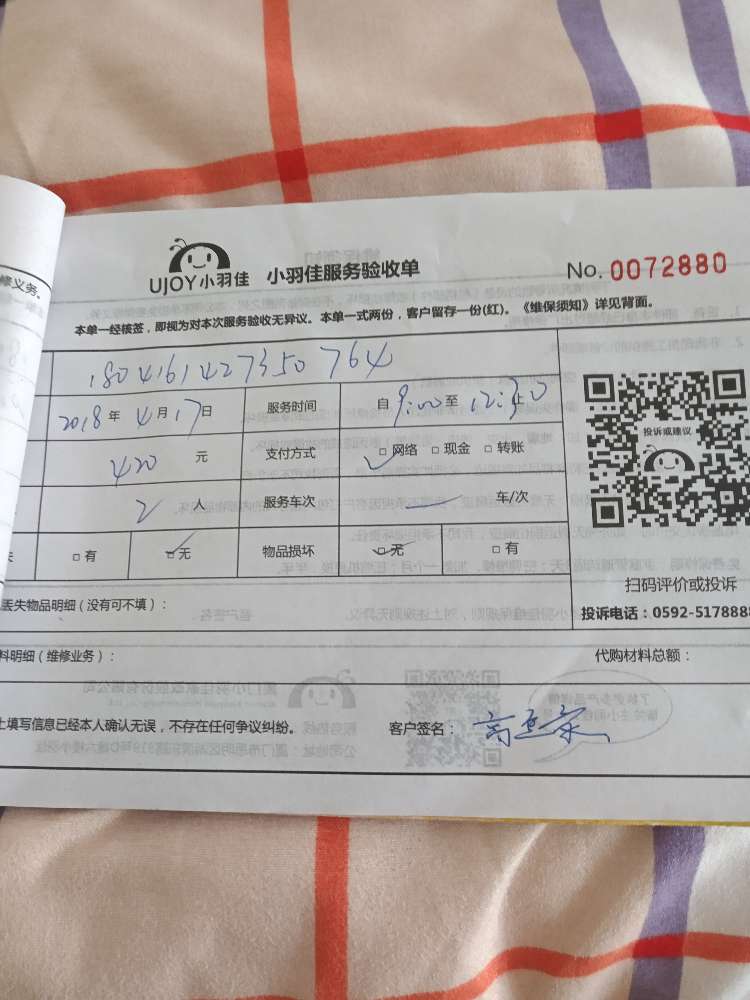 修义务。
UJOY小羽佳 小羽佳服务验收单 No. 0072880
本单一经核签，即视为对本次服务验收无异议。本单一式两份，客户留存一份(红)。《维保须知》详见背面。
1804161427350764
2018 年 4 月 17 日 服务时间 自 9:00 至 12:30 止
420 元 支付方式 □ 网络 □ 现金 □ 转账
2 人 服务车次 — 车/次
□ 有 □ 无 物品损坏 □ 无 □ 有
投诉或建议
扫码评价或投诉
投诉电话：0592-5178888
丢失物品明细（没有可不填）：
料明细（维修业务）： 代购材料总额：
上填写信息已经本人确认无误，不存在任何争议纠纷。 客户签名：